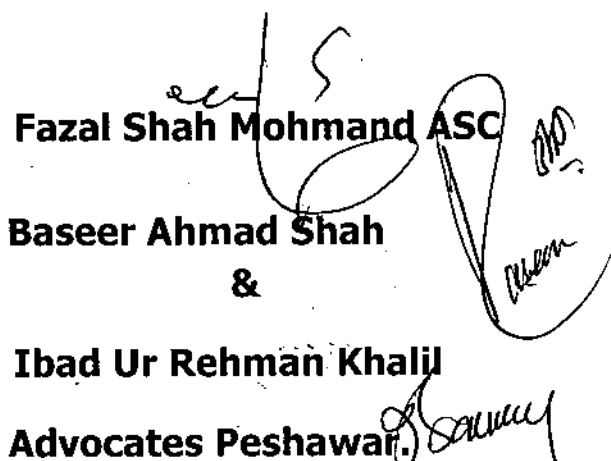 Fazal Shah Mohmand ASC
Baseer Ahmad Shah
&
Ibad Ur Rehman Khalil
Advocates Peshawar.